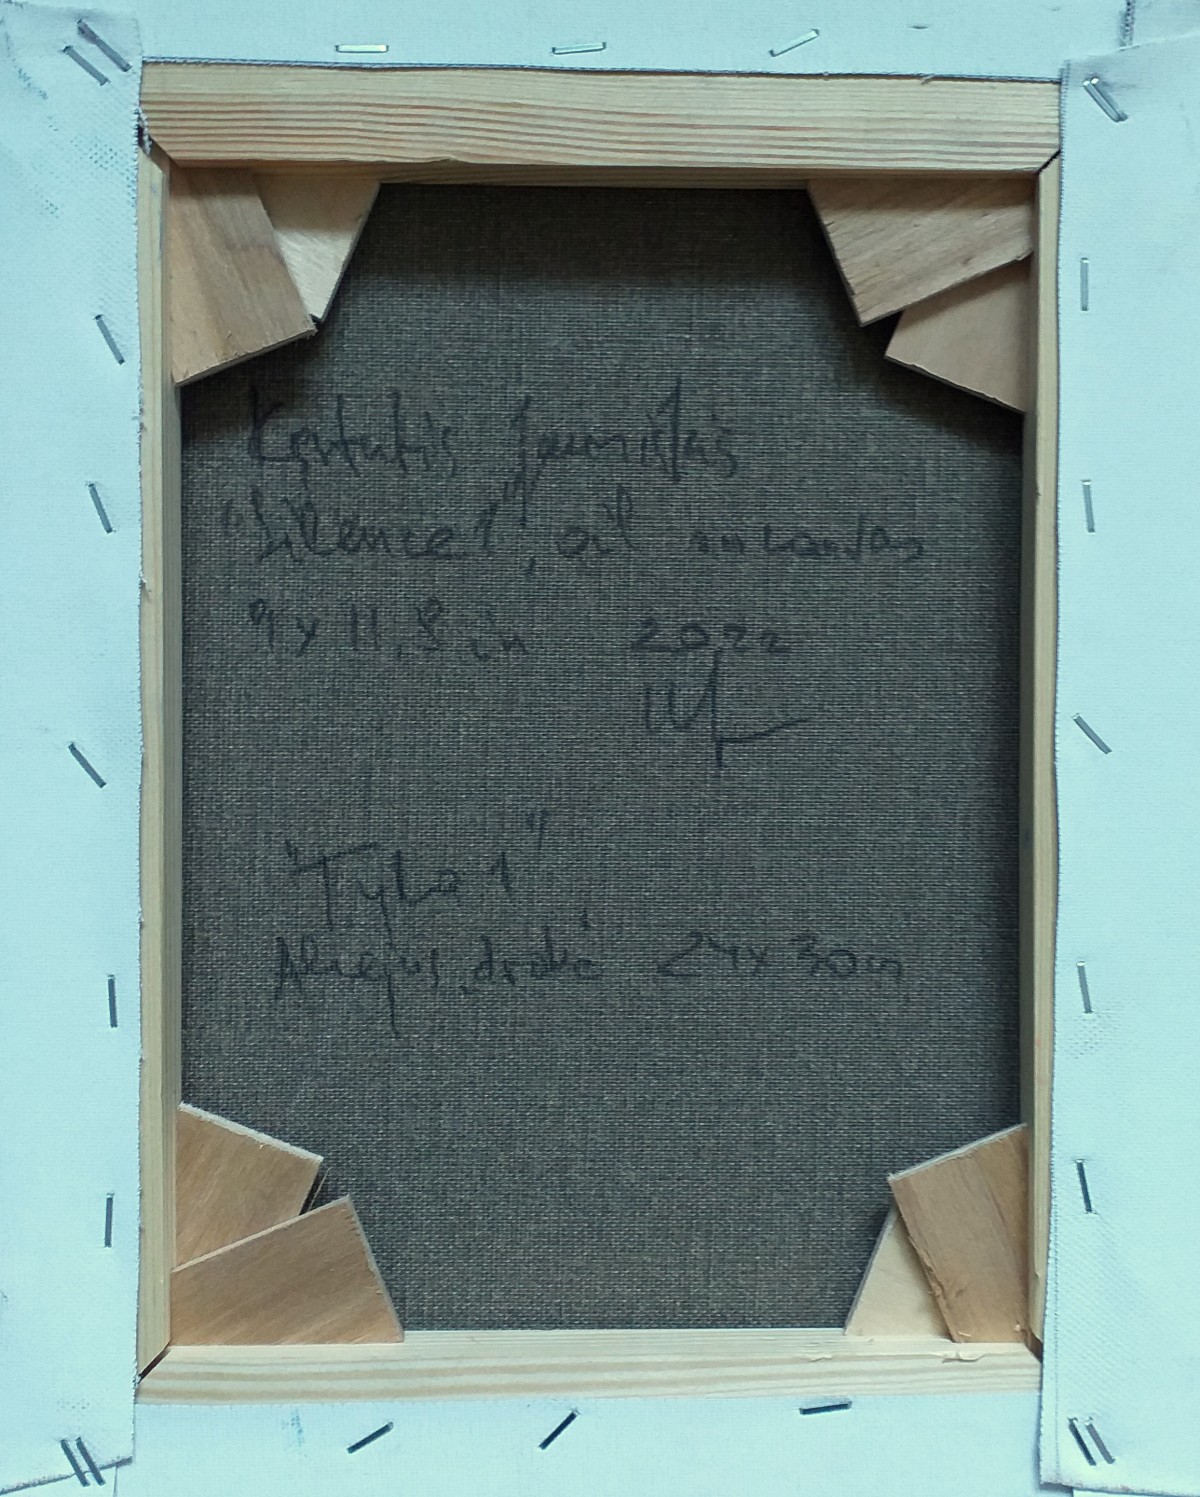 Kęstutis Jauniškis
"Silence 1", oil on canvas
9 x 11,8 in 2022
"Tyla 1"
Aliejus, drobė 24 x 30 cm